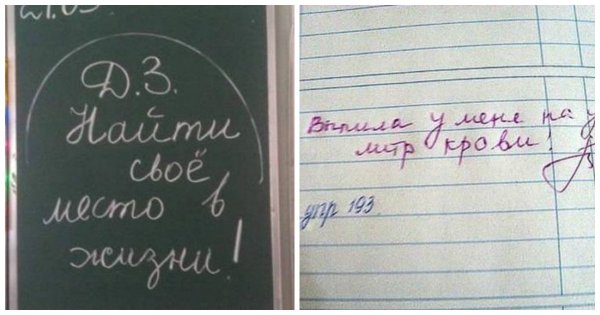 Д.З.
Найти
своё
место в
жизни!
Выпила у мене на у
литр крови!
упр 193.